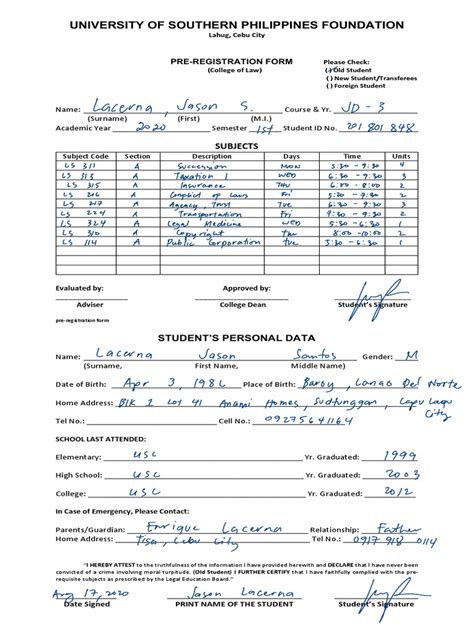 UNIVERSITY OF SOUTHERN PHILIPPINES FOUNDATION
Lahug, Cebu City
PRE-REGISTRATION FORM
(College of Law)
Please Check:
(✓) Old Student
( ) New Student/Transferees
( ) Foreign Student
Name: Lacerna, Jason S. Course & Yr. JD - 3
(Surname) (First) (M.I.)
Academic Year 2020 Semester 1st Student ID No. 201 801 848
SUBJECTS
Subject Code Section Description Days Time Units
LS 311 A Succession MON 5:30 - 9:30 4
LS 313 A Taxation 1 WED 6:30 - 9:30 3
LS 315 A Insurance THU 6:00 - 8:00 2
LS 206 A Conflict of Laws Fri 5:30 - 7:30 2
LS 217 A Agency, Trust Tve 6:30 - 9:30 3
LS 224 A Transportation Fri 7:30 - 9:30 2
LS 324 A Legal Medicine WED
LS 310 A Copyright the 8:00 - 10:00 2
LS 114 A Public Corporation tve 3:30 - 6:30 3
Evaluated by: Approved by:
Adviser College Dean Student's Signature
pre-registration form
STUDENT'S PERSONAL DATA
Name: Lacerna Jason Santos Gender: M
(Surname, First Name, Middle Name)
Date of Birth: Apr 3, 1986 Place of Birth: Baroy, Lanao Del Norte
Home Address: Blk 2 Lot 41 Anami Homes, Sudtunggan, Lapu Lapu City
Tel No.: Cell No.: 09275641164
SCHOOL LAST ATTENDED:
Elementary: USC Yr. Graduated: 1999
High School: USC Yr. Graduated: 2003
College: USC Yr. Graduated: 2012
In Case of Emergency, Please Contact:
Parents/Guardian: Enrique Lacerna Relationship: Father
Home Address: Tisa, Cebu City Tel No.: 0917 918 0114
"I HEREBY ATTEST to the truthfulness of the information I have provided herewith and DECLARE that I have never been
convicted of a crime involving moral turpitude. (Old Student) I FURTHER CERTIFY that I have faithfully complied with the pre-
requisite subjects as prescribed by the Legal Education Board."
Aug 17, 2020
Date Signed PRINT NAME OF THE STUDENT Student's Signature